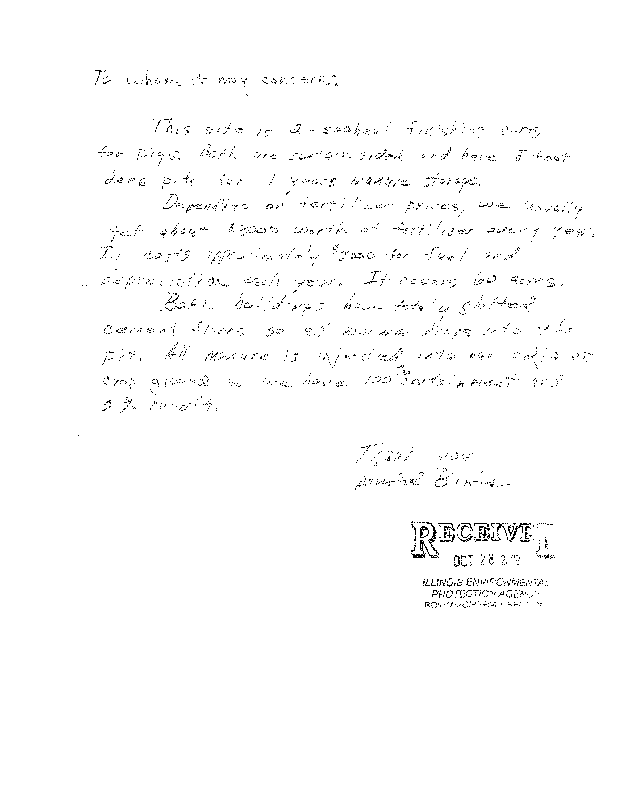 To whom it may concern,
This site is 2 - finishing barns
for pigs. Both are curtain sided and have 8 foot
deep pits for 1 years manure storage.
Depending on fertilizer prices, we usually
get about worth of fertilizer every year.
It costs for fuel and
depreciation each year. It covers 60 acres.
Both buildings have totally slatted
cement floors so all manure drops into the
pit. All manure is injected into our
crop ground so we have 100% containment and
0% runoff.
Thank you
RECEIVED
OCT 28
ILLINOIS ENVIRONMENTAL
PROTECTION AGENCY